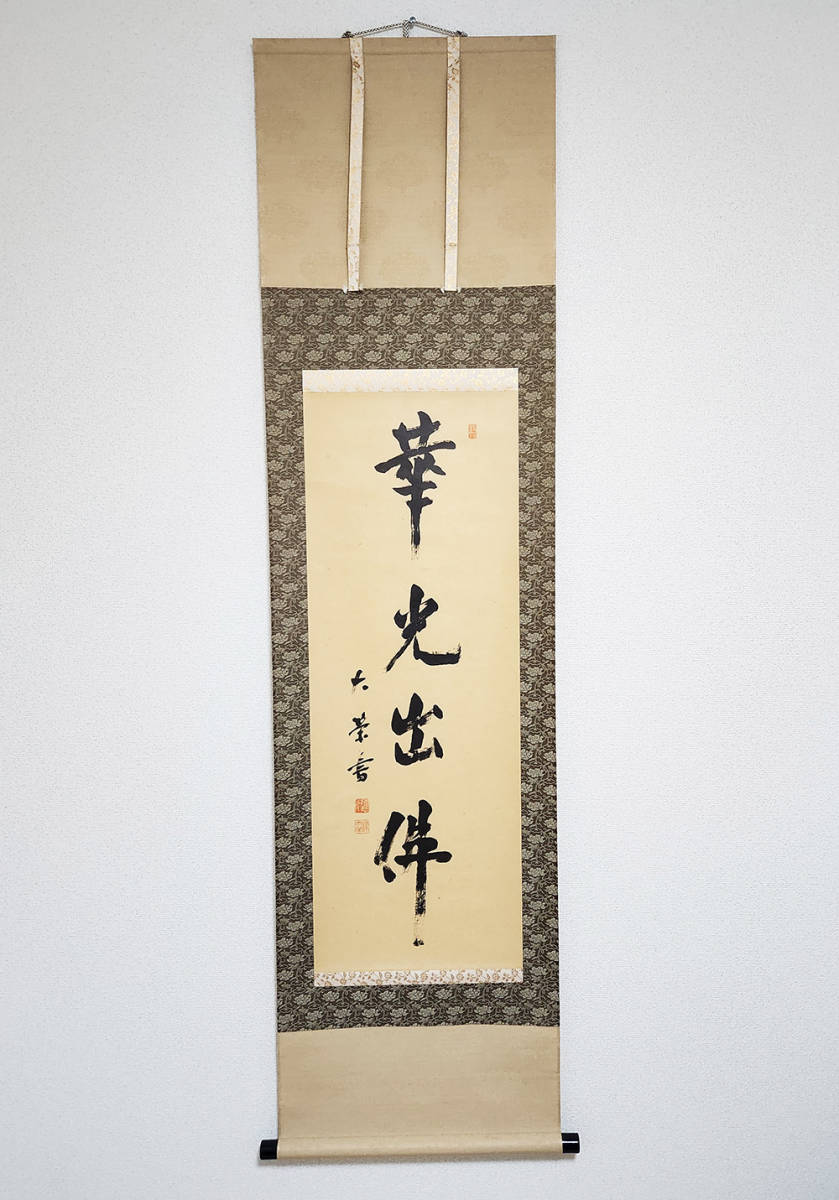 華光出佛
大榮書